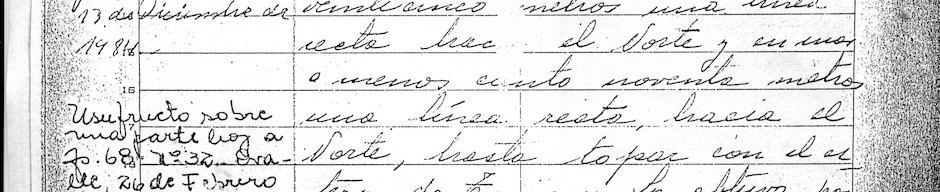 13 de Diciembre de
1984.
Usufructo sobre
una parte hoy a
fs. 68 Nº 32. Ova-
lle, 26 de Febrero
veinticinco metros una línea
recta hac el Norte y en mas
o menos ciento noventa metros
16
una línea recta, hacia el
Norte, hasta topar con el